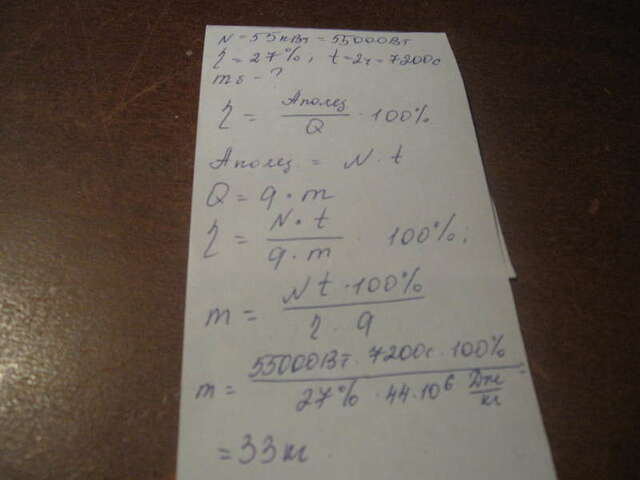 N = 55кВт = 55000Вт
η = 27%, t = 2ч = 7200с
mб - ?
η = Aполез / Q · 100%
Aполез = N · t
Q = q · m
η = N · t / q · m 100%;
m = N t · 100% / η · q
m = 55000Вт · 7200с · 100% / 27% · 44·10⁶ Дж/кг =
= 33кг